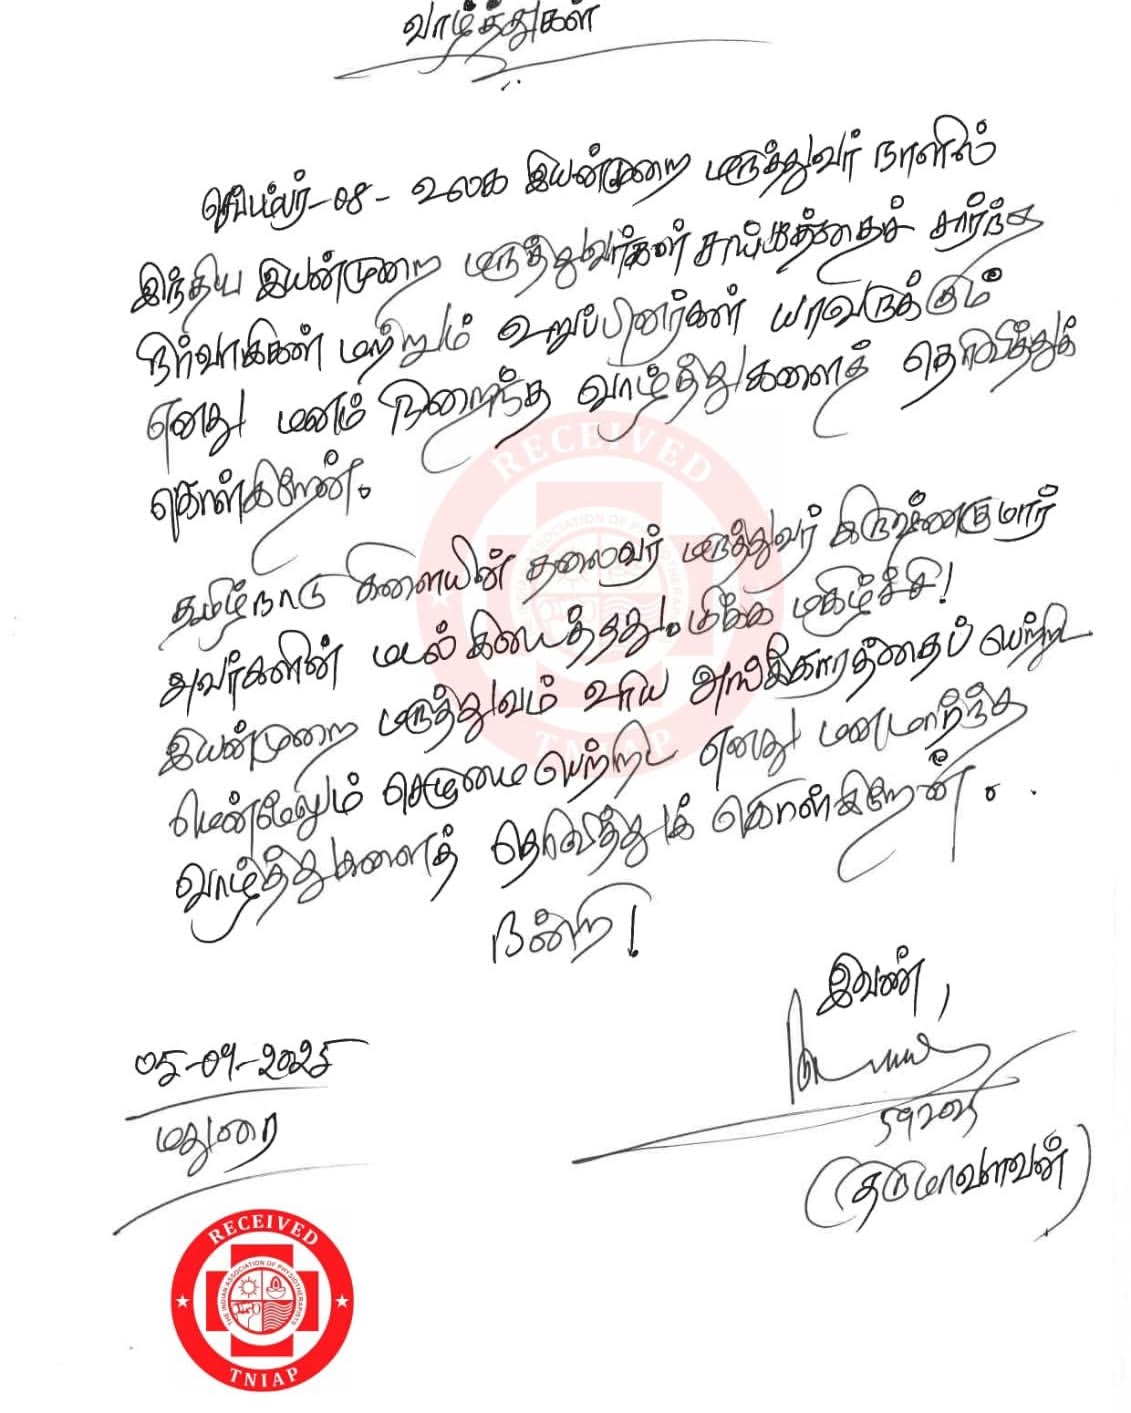 வாழ்த்துகள்
செப்டம்பர்-08- உலக இயன்முறை மருத்துவர் நாளில்
இந்திய இயன்முறை மருத்துவர்கள் சங்கத்தைச் சார்ந்த
நிர்வாகிகள் மற்றும் உறுப்பினர்கள் யாவருக்கும்
எனது மனம் நிறைந்த வாழ்த்துகளைத் தெரிவித்துக்
கொள்கிறேன்.
தமிழ்நாடு கிளையின் தலைவர் மருத்துவர் கிருஷ்ணகுமார்
அவர்களின் மடல் கிடைத்தது. மிக்க மகிழ்ச்சி!
இயன்முறை மருத்துவம் உரிய அங்கீகாரத்தைப் பெற்று
மென்மேலும் செழுமை பெற்றிட எனது மனமார்ந்த
வாழ்த்துகளைத் தெரிவித்துக் கொள்கிறேன்.
நன்றி!
இவண்,
05-09-2025
மதுரை
592025
(திருமாவளவன்)
RECEIVED
THE INDIAN ASSOCIATION OF PHYSIOTHERAPISTS
TNIAP